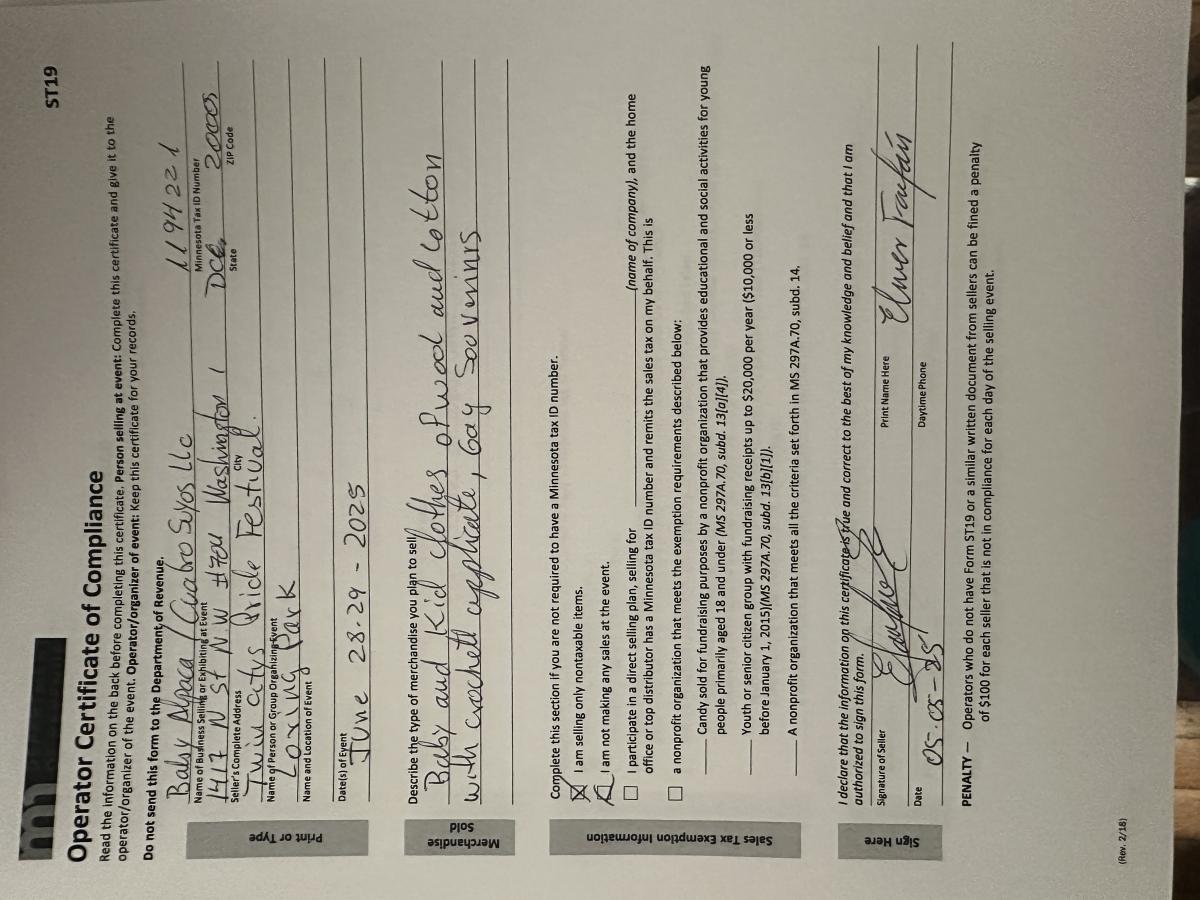 ST19
Operator Certificate of Compliance
Read the information on the back before completing this certificate. Person selling at event: Complete this certificate and give it to the
operator/organizer of the event. Operator/organizer of event: Keep this certificate for your records.
Do not send this form to the Department of Revenue.
Print or Type
Baby Alpaca / Cuabro Suyos LLC 1194221
Name of Business Selling or Exhibiting at Event Minnesota Tax ID Number
1417 N St NW #704 Washington DC 20005
Seller's Complete Address City State ZIP Code
Twin Citys Pride Festival.
Name of Person or Group Organizing Event
Loxing Park
Name and Location of Event
June 28-29 - 2025
Date(s) of Event
Merchandise Sold
Describe the type of merchandise you plan to sell
Baby and Kid clothes of wool and cotton
with crochett applicate, Gay Souvenirs
Sales Tax Exemption Information
Complete this section if you are not required to have a Minnesota tax ID number.
I am selling only nontaxable items.
I am not making any sales at the event.
I participate in a direct selling plan, selling for (name of company), and the home
office or top distributor has a Minnesota tax ID number and remits the sales tax on my behalf. This is
a nonprofit organization that meets the exemption requirements described below:
Candy sold for fundraising purposes by a nonprofit organization that provides educational and social activities for young
people primarily aged 18 and under (MS 297A.70, subd. 13[a][4]).
Youth or senior citizen group with fundraising receipts up to $20,000 per year ($10,000 or less
before January 1, 2015)(MS 297A.70, subd. 13[b][1]).
A nonprofit organization that meets all the criteria set forth in MS 297A.70, subd. 14.
Sign Here
I declare that the information on this certificate is true and correct to the best of my knowledge and belief and that I am
authorized to sign this form.
Elmer Farfán
Signature of Seller Print Name Here
05-05-25
Date Daytime Phone
PENALTY — Operators who do not have Form ST19 or a similar written document from sellers can be fined a penalty
of $100 for each seller that is not in compliance for each day of the selling event.
(Rev. 2/18)